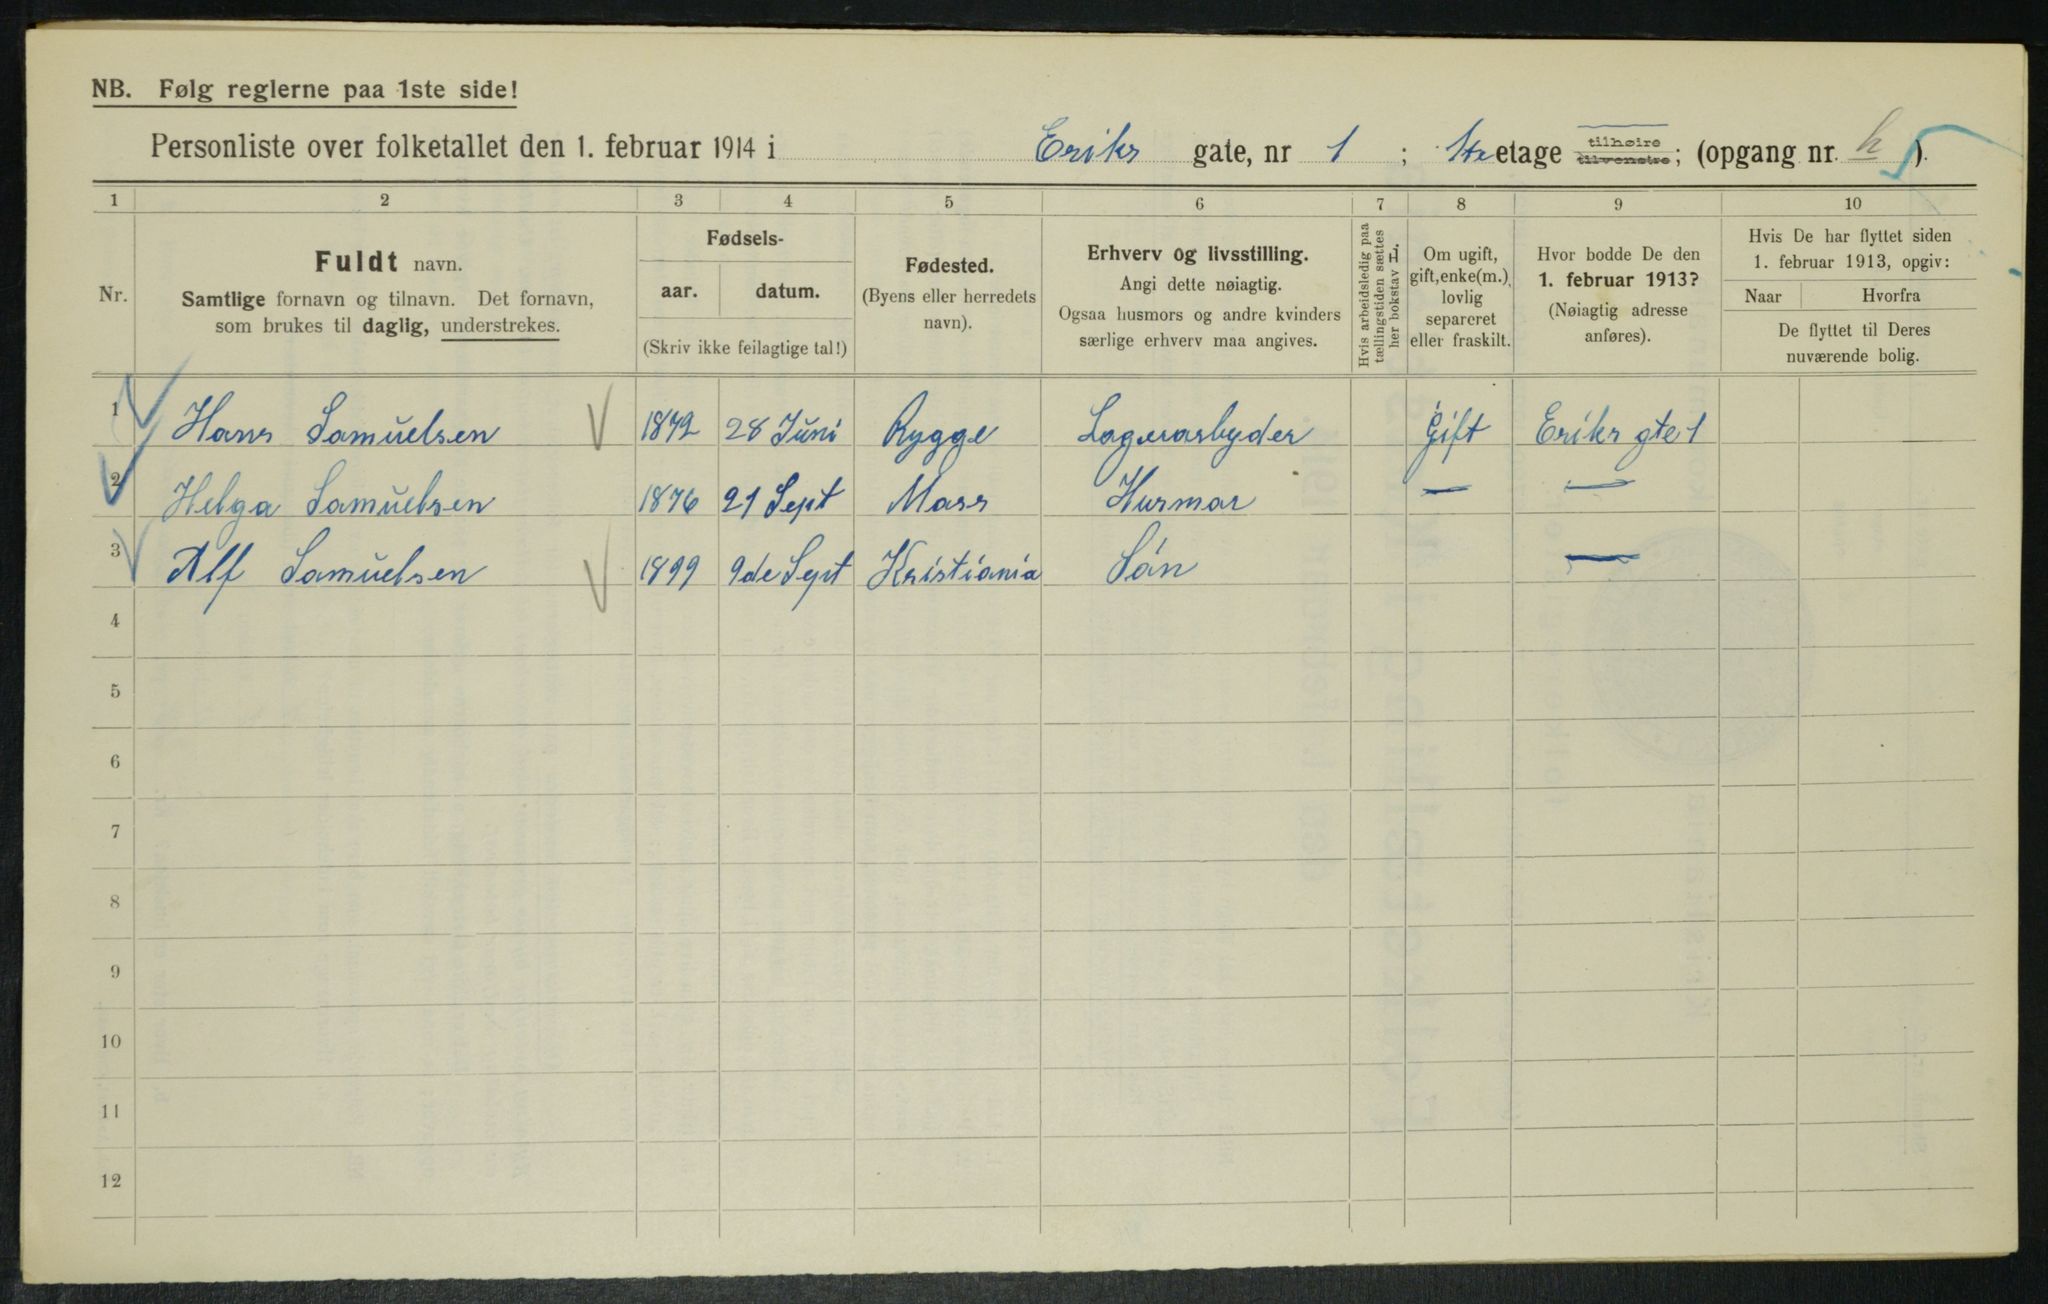 NB. Følg reglerne paa 1ste side!
Personliste over folketallet den 1. februar 1914 i Eriks gate, nr 1 ; 1ste etage tilhøire tilvenstre; (opgang nr. h ).
1 2 3 4 5 6 7 8 9 10
Nr.
Fuldt navn.
Samtlige fornavn og tilnavn. Det fornavn,
som brukes til daglig, understrekes.
Fødsels-
aar. datum.
(Skriv ikke feilagtige tal!)
Fødested.
(Byens eller herredets
navn).
Erhverv og livsstilling.
Angi dette nøiagtig.
Ogsaa husmors og andre kvinders
særlige erhverv maa angives.
Hvis arbeidsledig paa
tællingstiden sættes
her bokstav L.
Om ugift,
gift, enke(m.),
lovlig
separeret
eller fraskilt.
Hvor bodde De den
1. februar 1913?
(Nøiagtig adresse
anføres).
Hvis De har flyttet siden
1. februar 1913, opgiv:
Naar Hvorfra
De flyttet til Deres
nuværende bolig.
1 Hans Samuelsen 1872 28 Juni Rygge Lagerarbyder Gift Eriks gte 1
2 Helga Samuelsen 1876 21 Sept Moss Husmor — —
3 Alf Samuelsen 1899 9de Sept Kristiania Sön —
4
5
6
7
8
9
10
11
12